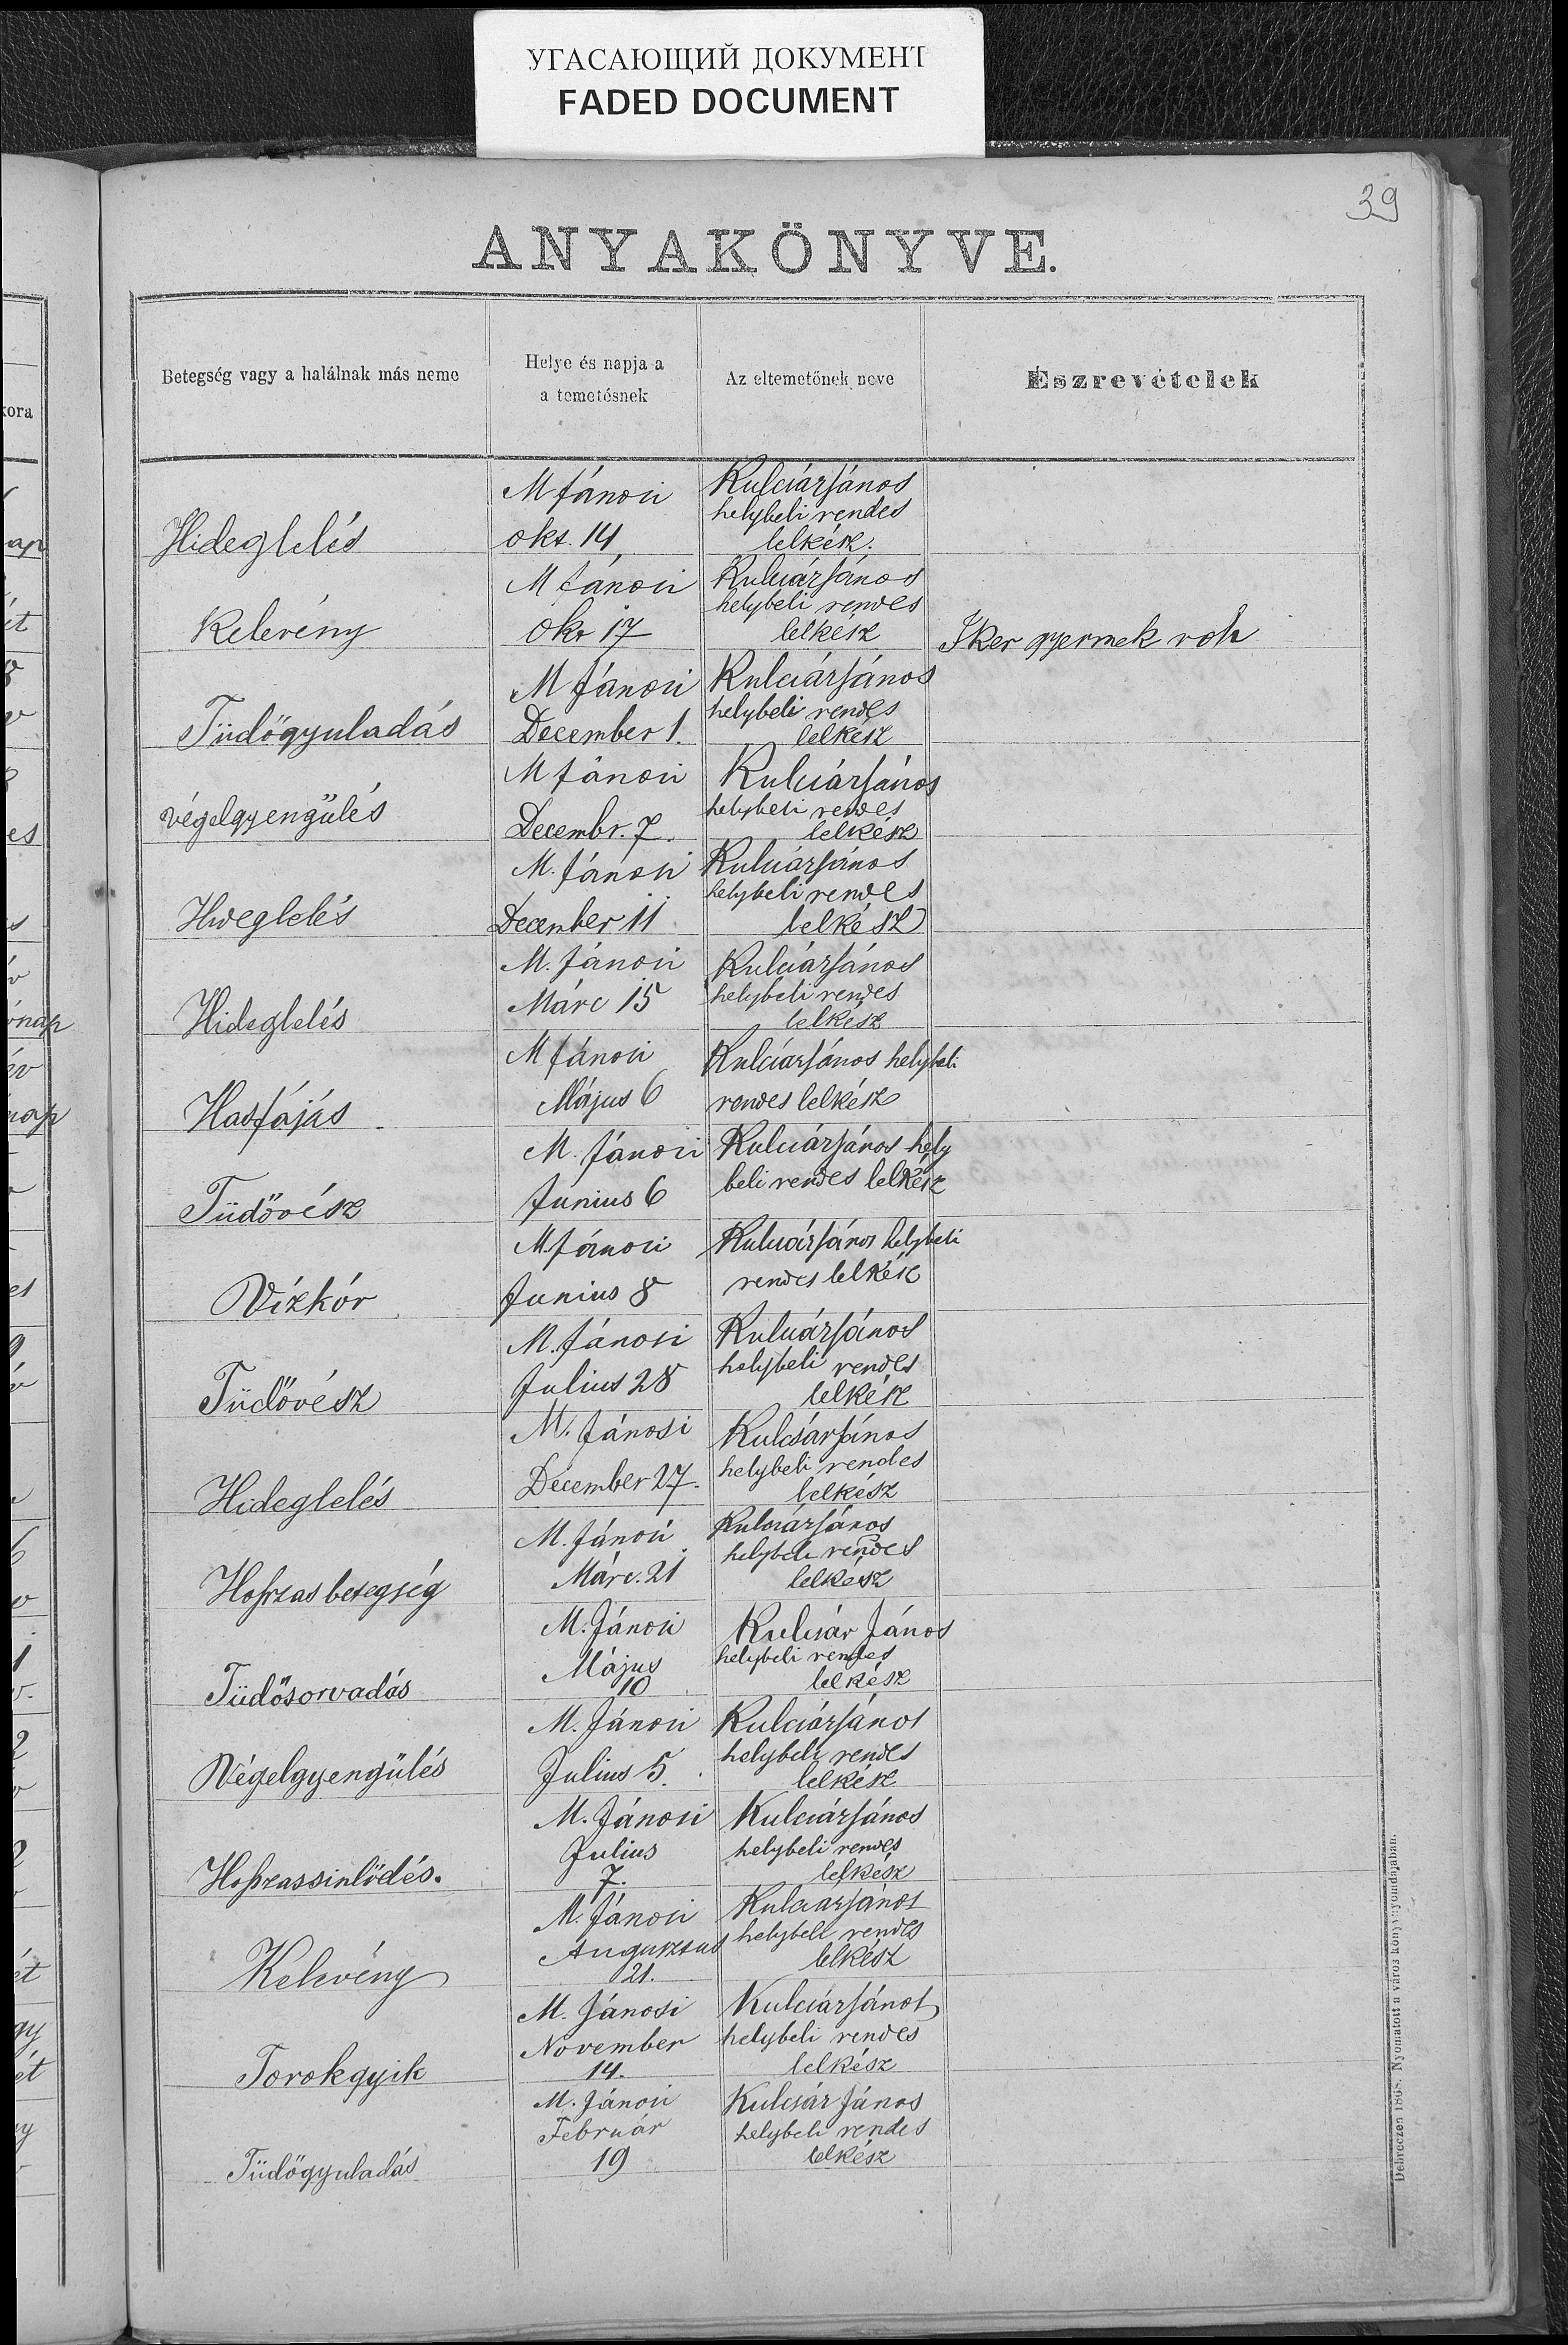 УГАСАЮЩИЙ ДОКУМЕНТ
FADED DOCUMENT
39
ANYAKÖNYVE.
kora
Betegség vagy a halálnak más neme
Helye és napja a
a temetésnek
Az eltemetőnek neve
Észrevételek
Hideglelés
M Jánosi
okt. 14
Kulcsár János
helybeli rendes
lelkész.
Kelevény
M Jánosi
Okt 17
Kulcsár János
helybeli rendes
lelkész
Iker gyermek volt
Tüdőgyuladás
M Jánosi
December 1.
Kulcsár János
helybeli rendes
lelkész
végelgyengülés
M Jánosi
Decembr. 7.
Kulcsár János
helybeli rendes
lelkész
Hideglelés
M. Jánosi
December 11
Kulcsár János
helybeli rendes
lelkész
Hideglelés
M. Jánosi
Márc 15
Kulcsár János
helybeli rendes
lelkész
Hasfájás
M Jánosi
Május 6
Kulcsár János helybeli
rendes lelkész
Tüdővész
M. Jánosi
Junius 6
Kulcsár János hely
beli rendes lelkész
Vízkór
M Jánosi
Junius 8
Kulcsár János helybeli
rendes lelkész
Tüdővész
M. Jánosi
Julius 28
Kulcsár János
helybeli rendes
lelkész
Hideglelés
M. Jánosi
December 27.
Kulcsár János
helybeli rendes
lelkész
Hoszzas betegség
M. Jánosi
Márc. 21
Kulcsár János
helybeli rendes
lelkész
Tüdősorvadás
M. Jánosi
Május
10
Kulcsár János
helybeli rendes
lelkész
Végelgyengülés
M. Jánosi
Julius 5.
Kulcsár János
helybeli rendes
lelkész
Hoszzassinlődés.
M. Jánosi
Julius
7.
Kulcsár János
helybeli rendes
lelkész
Kelevény
M. Jánosi
Augusztus
21.
Kulcsár János
helybeli rendes
lelkész
Torokgyik
M. Jánosi
November
14.
Kulcsár János
helybeli rendes
lelkész
Tüdőgyuladás
M. Jánosi
Február
19
Kulcsár János
helybeli rendes
lelkész
Debreczen 1868. Nyomatott a város könyvnyomdájában.